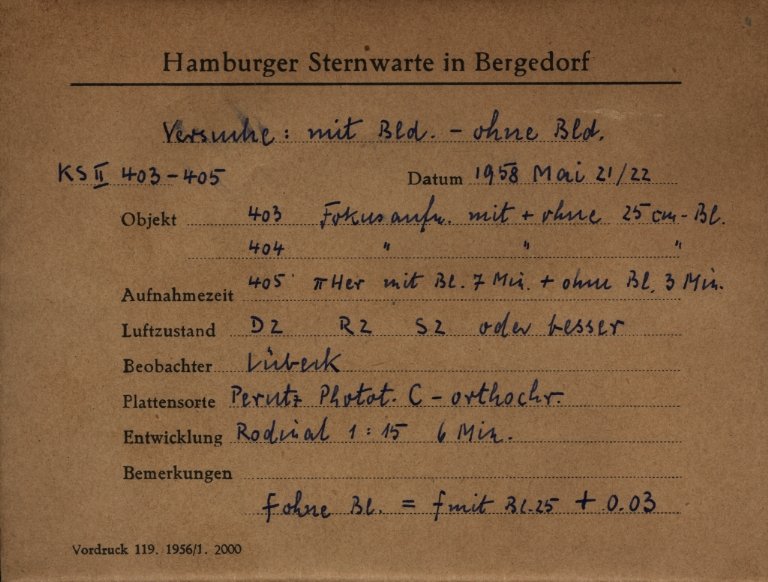 Hamburger Sternwarte in Bergedorf
Versuche: mit Bld. - ohne Bld.
KS II 403-405 Datum 1958 Mai 21/22
Objekt 403 Fokusaufn. mit + ohne 25 cm-Bl.
404 " " "
Aufnahmezeit 405 π Her mit Bl. 7 Min. + ohne Bl. 3 Min.
Luftzustand D2 R2 S2 oder besser
Beobachter Lübeck
Plattensorte Perutz Photot. C - orthochr.
Entwicklung Rodinal 1:15 6 Min.
Bemerkungen
f ohne Bl. = f mit Bl. 25 + 0.03
Vordruck 119. 1956/1. 2000